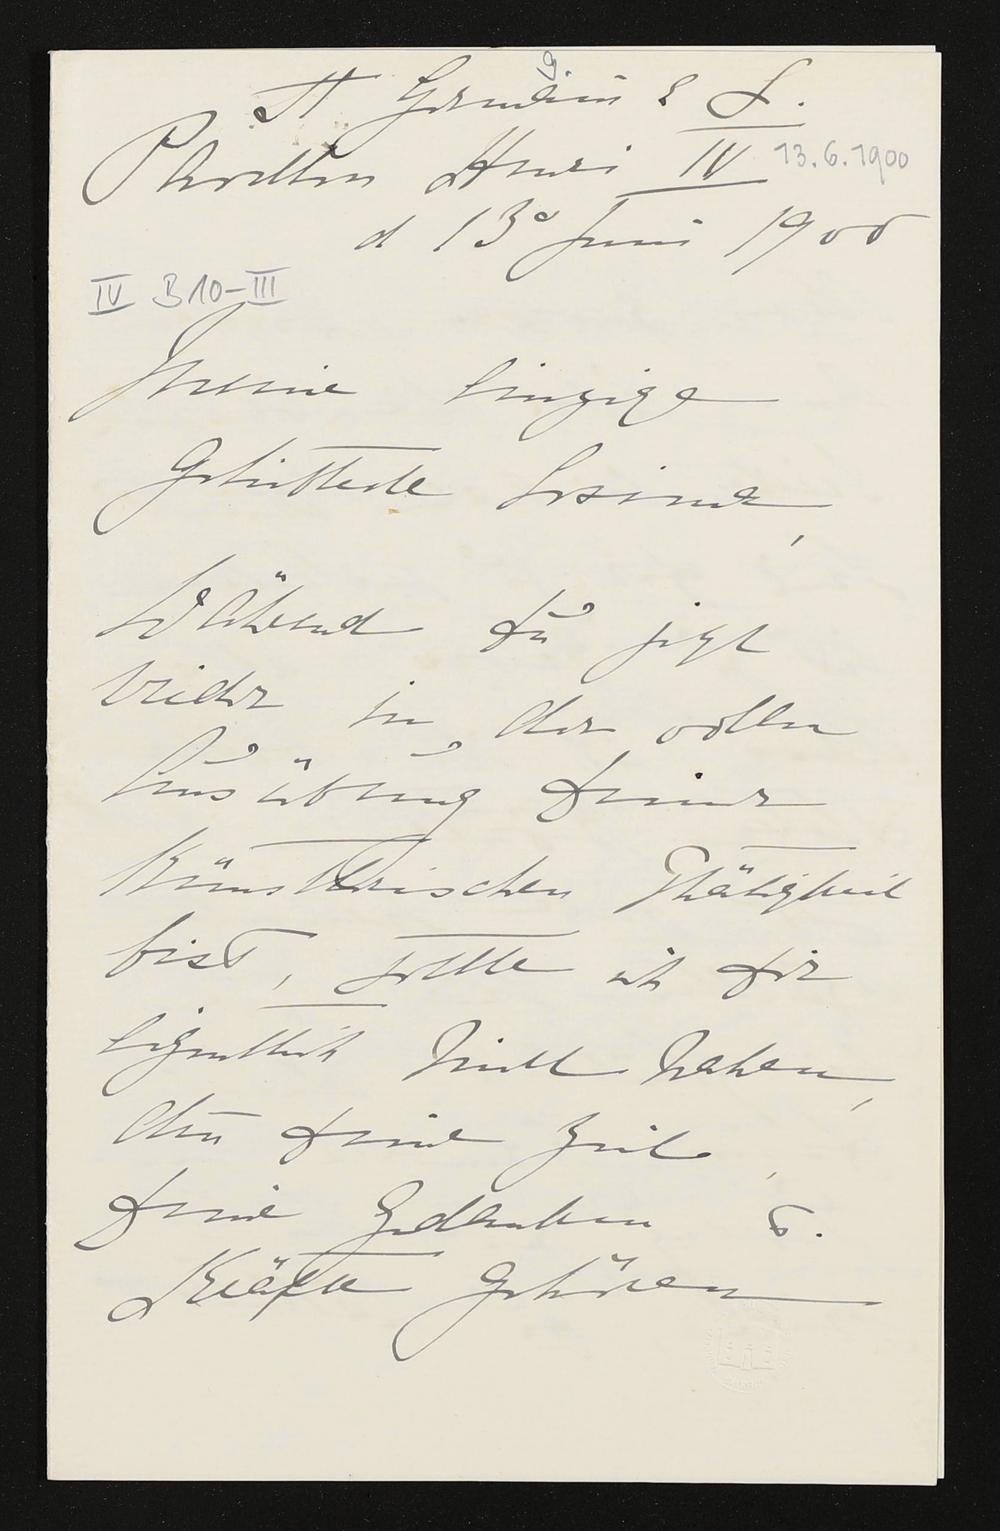 St Germain e L.
Pavillon Henri IV
13.6.1900
d 13 Juni 1900
IV B 10-III
Meine einzige
Geliebteste Cosima,
Während Du jetzt
wieder in der vollen
Ausübung Deiner
künstlerischen Thätigkeit
bist, sollte ich Dir
eigentlich nicht nahen,
denn Deine Zeit,
Deine Gedanken u.
Kräfte gehören